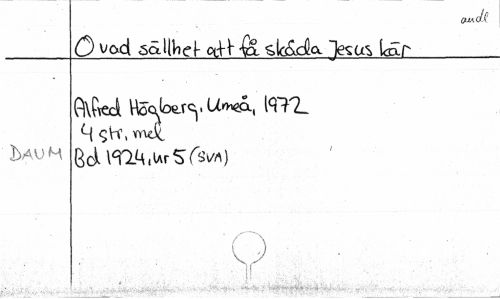 andl
O vad sällhet att få skåda Jesus kär
Alfred Högberg, Umeå, 1972
4 str, mel
DAUM Bd 1924, nr 5 (SVA)